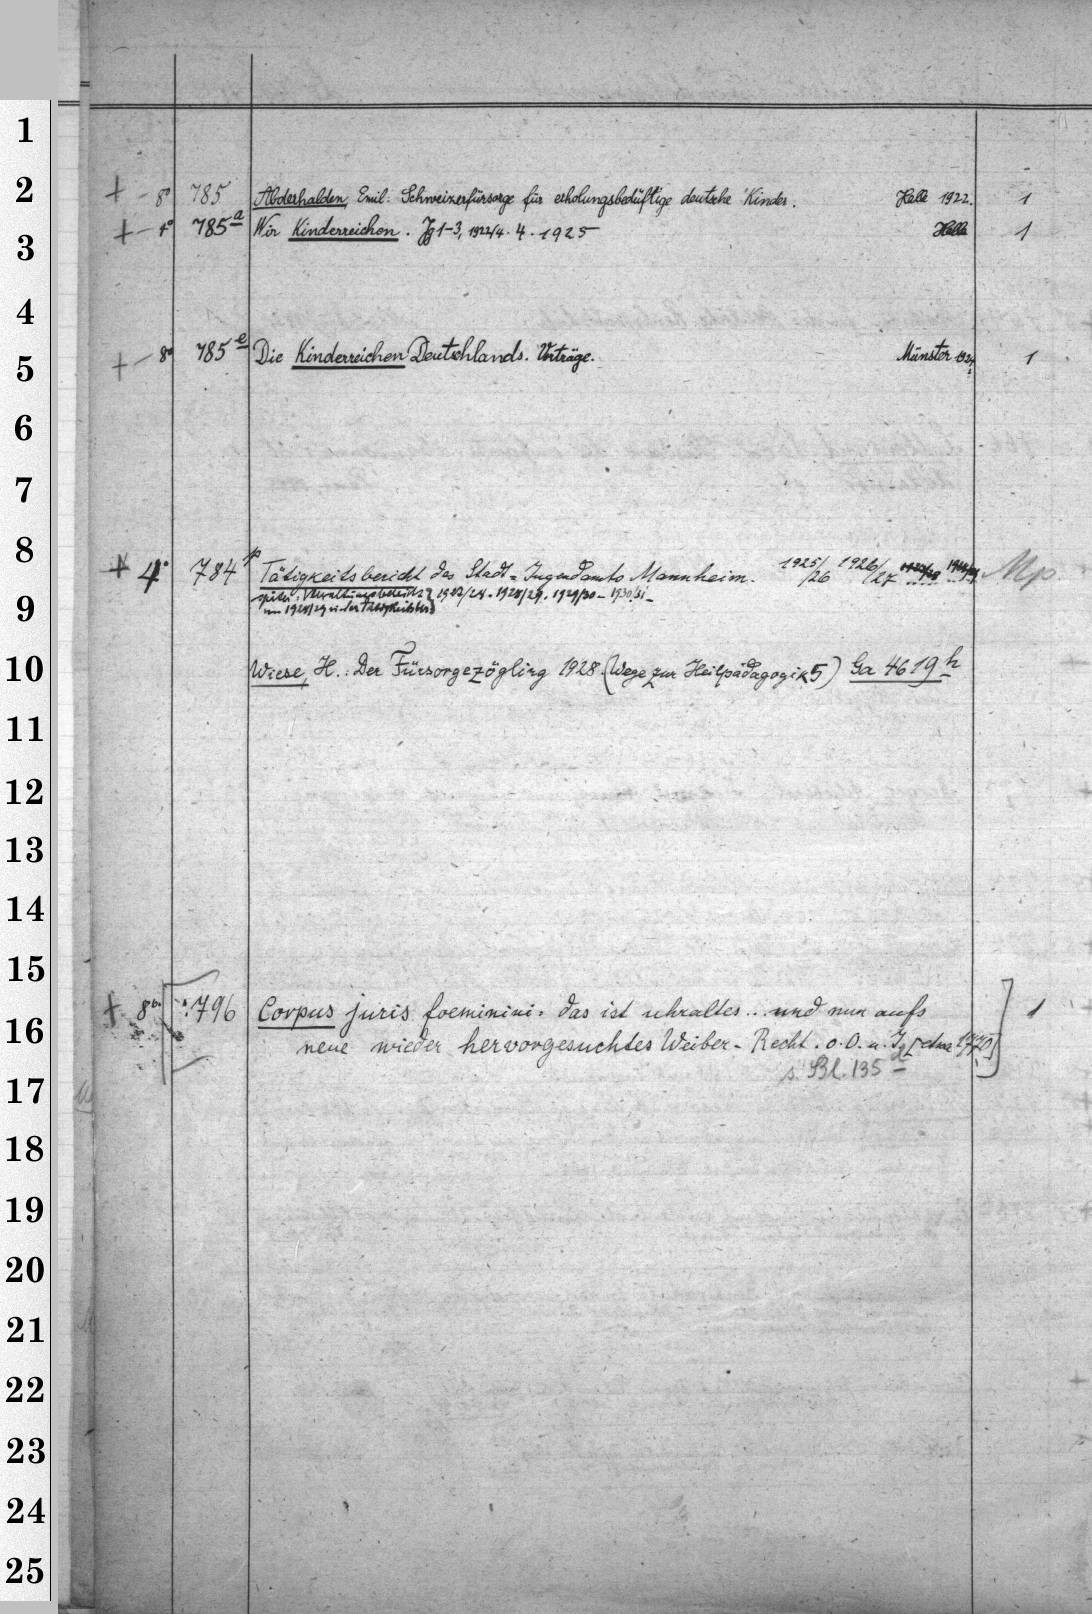 1
2
+ - 8° 785 Abderhalden, Emil: Schweizerfürsorge für erholungsbedüftige deutsche Kinder. Halle 1922. 1
+ - 4° 785a Wir Kinderreichen. Jg 1-3, 1922/4. 4. 1925 Halle 1
3
4
+ - 8° 785e Die Kinderreichen Deutschlands. Vorträge. Münster 1
5
6
7
8
+ 4° 784p Tätigkeitsbericht des Stadt-Jugendamts Mannheim. 1925/26 1926/27 Mp
9
später: 1927/28. 1928/29. 1929/30 - 1930/31 -
10
Wiese, H.: Der Fürsorgezögling 1928. (Wege zur Heilpädagogik 5) Ga 4619h
11
12
13
14
15
+ 8° 796 Corpus juris foeminini. das ist uhraltes ... und nun aufs 1
16
neue wieder hervorgesuchtes Weiber-Recht. o. O. u. J. [etwa
s. Bl. 135
17
18
19
20
21
22
23
24
25